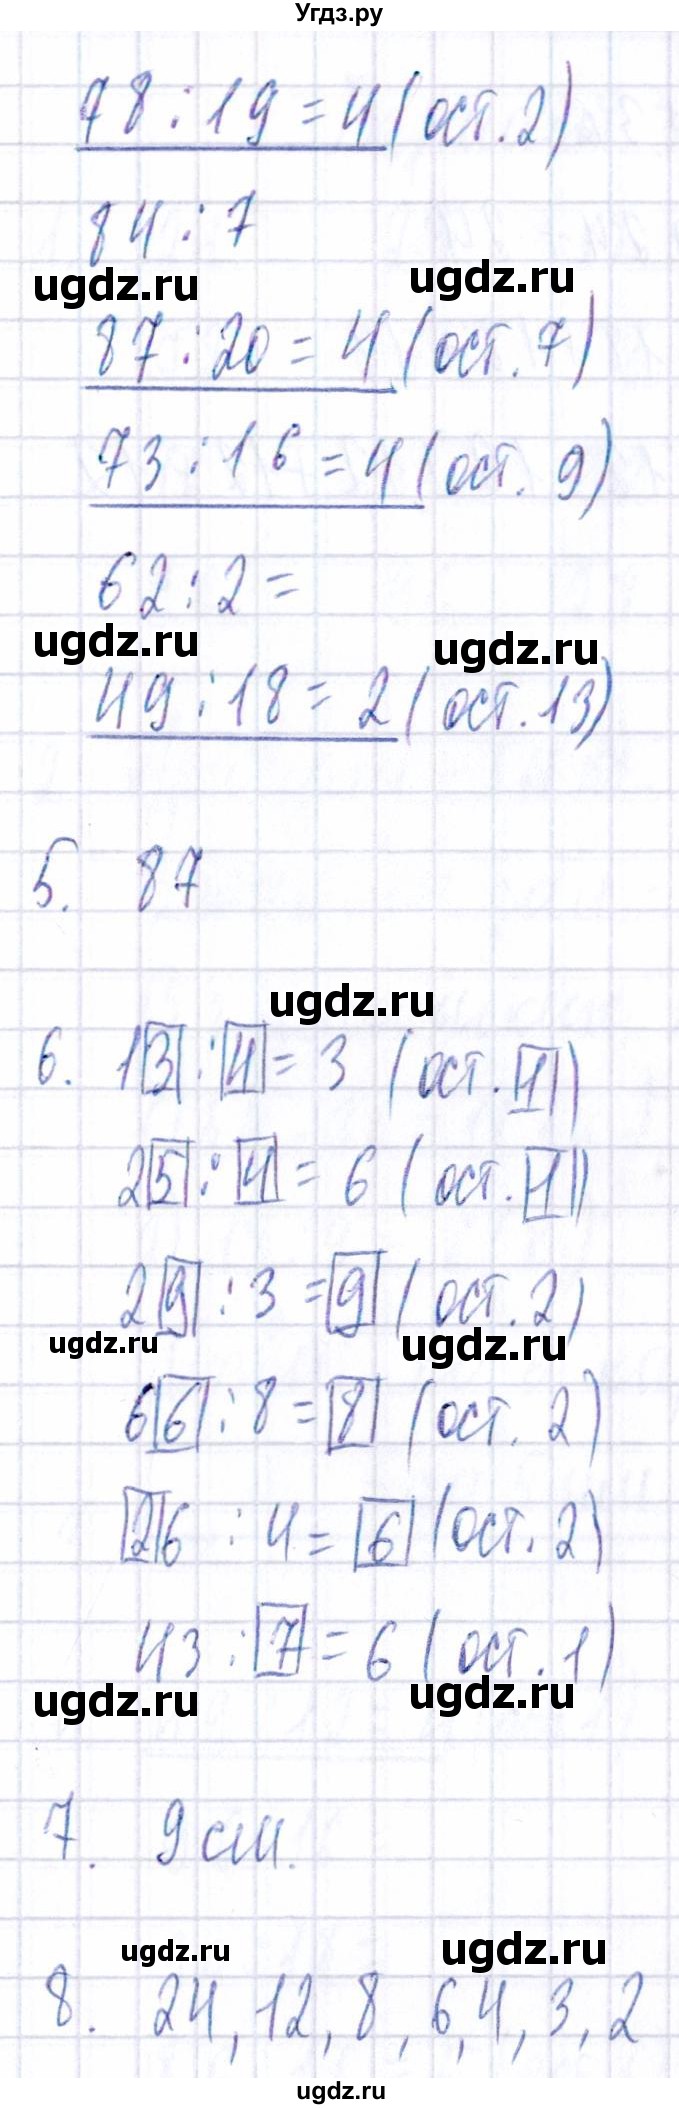 Угдз.ру
78 : 19 = 4 (ост. 2)
84 : 7
ugdz.ru ugdz.ru
87 : 20 = 4 (ост. 7)
73 : 16 = 4 (ост. 9)
62 : 2 =
ugdz.ru ugdz.ru
49 : 18 = 2 (ост. 13)
5. 87
ugdz.ru
6. 13 : 4 = 3 (ост. 1)
25 : 4 = 6 (ост. 1)
29 : 3 = 9 (ост. 2)
ugdz.ru ugdz.ru
66 : 8 = 8 (ост. 2)
26 : 4 = 6 (ост. 2)
43 : 7 = 6 (ост. 1)
ugdz.ru ugdz.ru
7. 9 см.
ugdz.ru ugdz.ru
8. 24, 12, 8, 6, 4, 3, 2
ugdz.ru